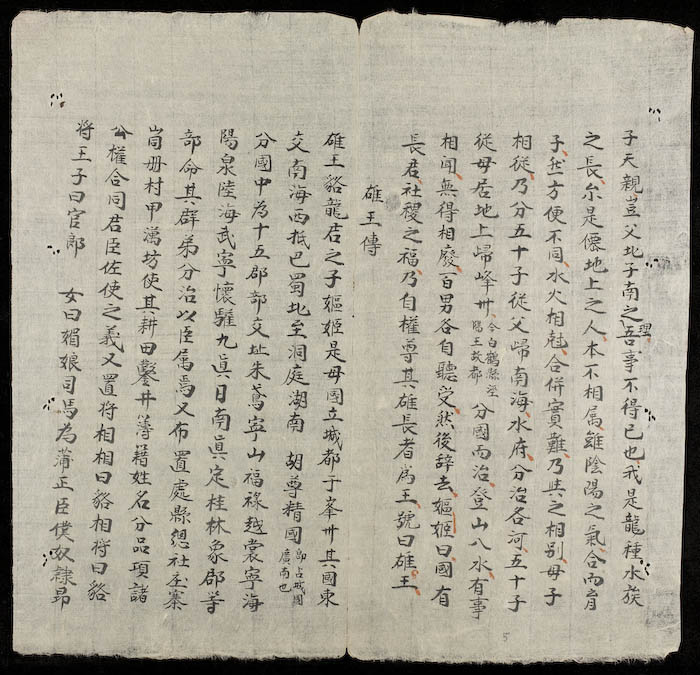 子天親豈父北子南之理吾事不得已也我是龍種水族
之長尔是僊地上之人本不相属雖陰陽之氣合而有
子然方便不同水火相尅合併實難乃與之相别母子
相從乃分五十子從父歸南海水府分治各河五十子
從母居地上歸峰州今白鶴縣雄王故都分國而治登山入水有事
相聞無得相廢百男各自聽受然後辞去嫗姬曰國有
長君社稷之福乃自權尊其雄長者為王號曰雄王
雄王傳
雄王貉龍君之子嫗姬是母國立城都于峯州其國東
交南海西抵巴蜀北至洞庭湖南胡尊精國即占城國廣南也
分國中為十五郡部交址朱鳶寧山福祿越裳寧海
陽泉陸海武寧懷驩九真日南真定桂林象郡等
部命其群弟分治以臣属焉又布置處縣總社庄寨
峝册村甲萬坊使其耕田鑿井簿籍姓名分品項諸
公權合同君臣佐使之義又置将相相曰貉相将曰貉
将王子曰官郎 女曰媚娘司馬為蒲正臣僕奴隸昂
5